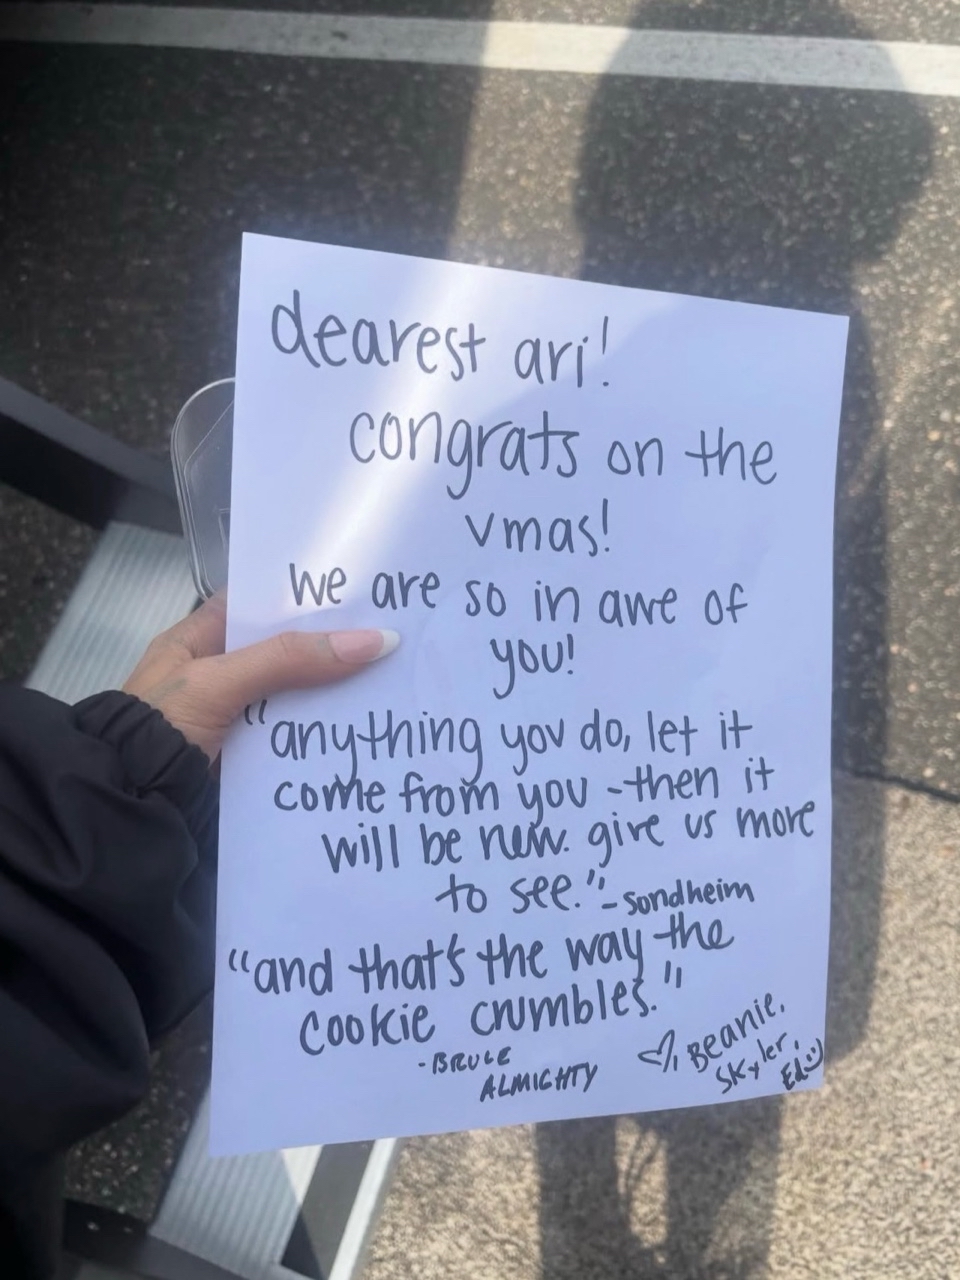 dearest ari!
congrats on the
vmas!
we are so in awe of
you!
"anything you do, let it
come from you - then it
will be new. give us more
to see." - Sondheim
"and that's the way the
cookie crumbles."
- BRUCE
ALMIGHTY
♡, Beanie,
Skyler,
Ed :)